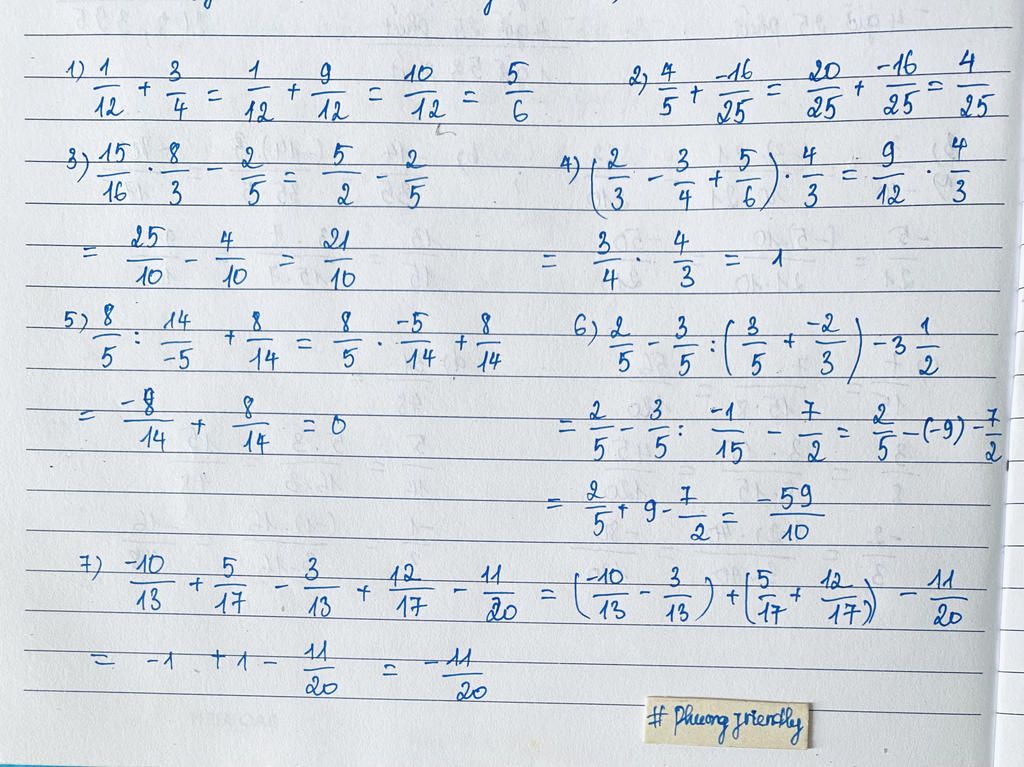 1) 1/12 + 3/4 = 1/12 + 9/12 = 10/12 = 5/6
2) 4/5 + -16/25 = 20/25 + -16/25 = 4/25
3) 15/16 . 8/3 - 2/5 = 5/2 - 2/5
= 25/10 - 4/10 = 21/10
4) (2/3 - 3/4 + 5/6) . 4/3 = 9/12 . 4/3
= 3/4 . 4/3 = 1
5) 8/5 : 14/-5 + 8/14 = 8/5 . -5/14 + 8/14
= -8/14 + 8/14 = 0
6) 2/5 - 3/5 : (3/5 + -2/3) - 3 1/2
= 2/5 - 3/5 : -1/15 - 7/2 = 2/5 - (-9) - 7/2
= 2/5 + 9 - 7/2 = -59/10
7) -10/13 + 5/17 - 3/13 + 12/17 - 11/20 = (-10/13 - 3/13) + (5/17 + 12/17) - 11/20
= -1 + 1 - 11/20 = -11/20
# Phuongfriendly